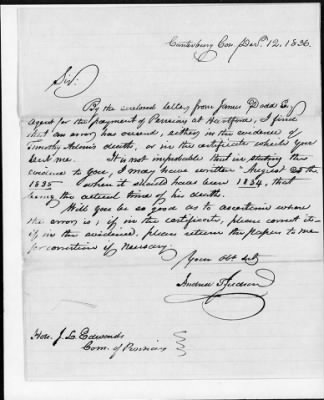 Canterbury Con. Decr. 12, 1836.
Sir:
By the enclosed letter from James Dodd Esq
Agent for the payment of Pensions at Hartford, I find
that an error has occured, either in the evidence of
Timothy Adams's death, or in the certificate which you
sent me. It is not improbable that in stating this
evidence to you, I may have written August 25th
1835 when it should have been 1834, that
being the actual time of his death.
Will you be so good as to ascertain where
the error is; if in the certificate, please correct it—
if in the evidence, please return the papers to me
for correction if necessary.
Your Obt Sert
Andrew T. Judson
Hon. J. L. Edwards
Com. of Pensions